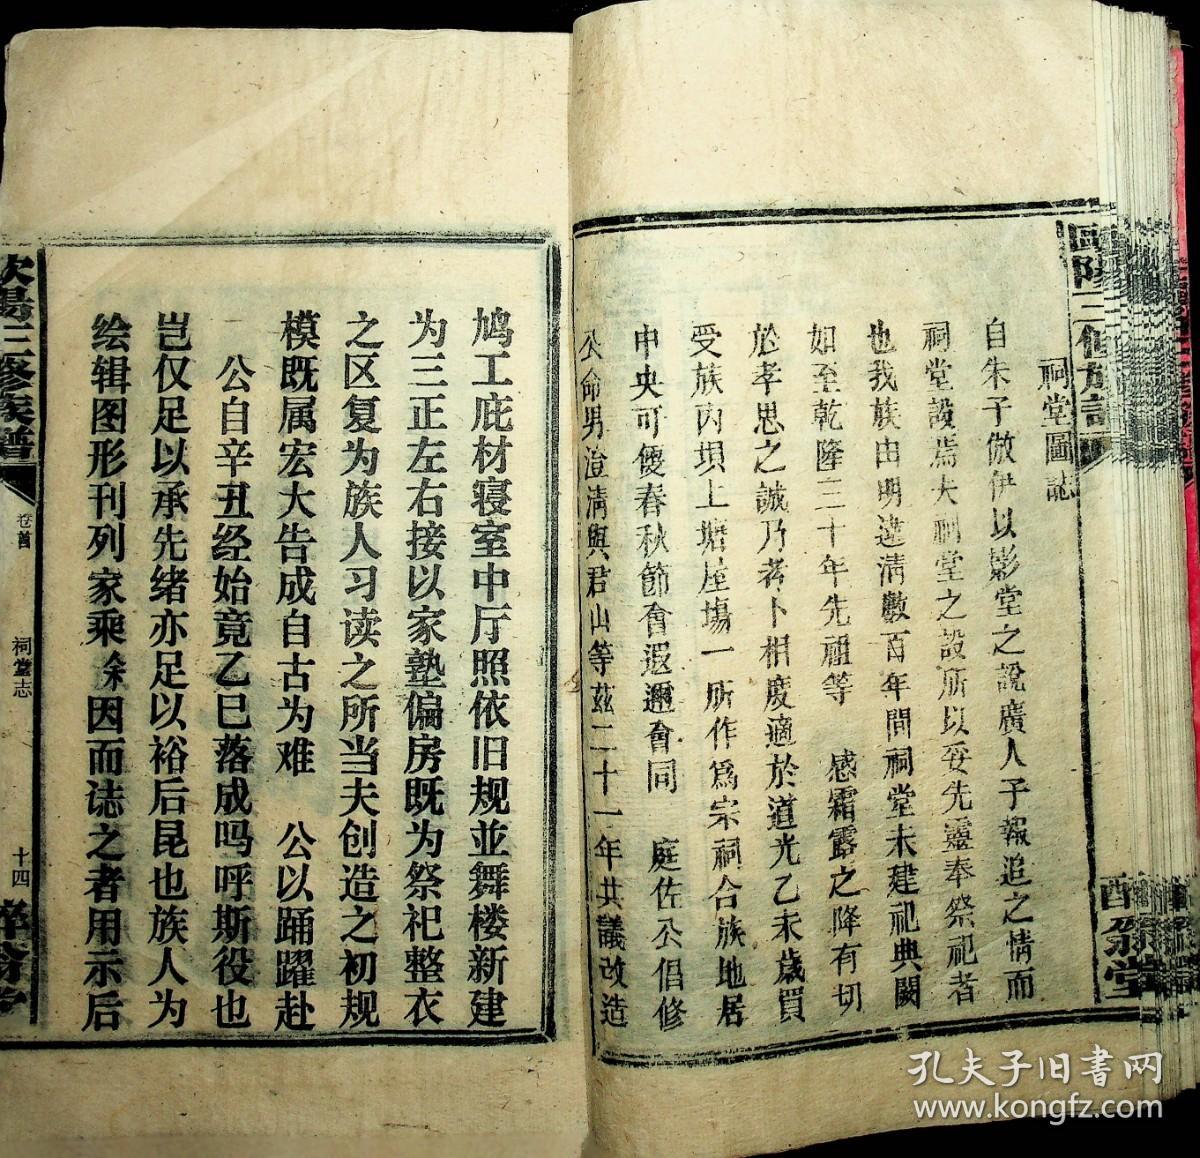 歐陽三修族譜
醉翁堂
祠堂圖誌
自朱子倣伊以影堂之說廣人予報追之情而
祠堂設焉夫祠堂之設所以妥先靈奉祭祀者
也我族由明迄清數百年間祠堂未建祀典闕
如至乾隆三十年先祖等 感霜露之降有切
於孝思之誠乃考卜相度適於道光乙未歲買
受族内坝上塘屋塲一所作為宗祠合族地居
中央可便春秋節會遐邇會同 庭佐公倡修
公命男澄清與君山等茲二十一年共議改造
鸠工庇材寝室中厅照依旧规並舞楼新建
为三正左右接以家塾偏房既为祭祀整衣
之区复为族人习读之所当夫创造之初规
模既属宏大告成自古为难 公以踊躍赴
公自辛丑经始竟乙巳落成吗呼斯役也
岂仅足以承先绪亦足以裕后昆也族人为
绘辑图形刊列家乘余因而誌之者用示后
欧陽三修族譜
卷首
祠堂志
十四
孔夫子旧書网
www.kongfz.com